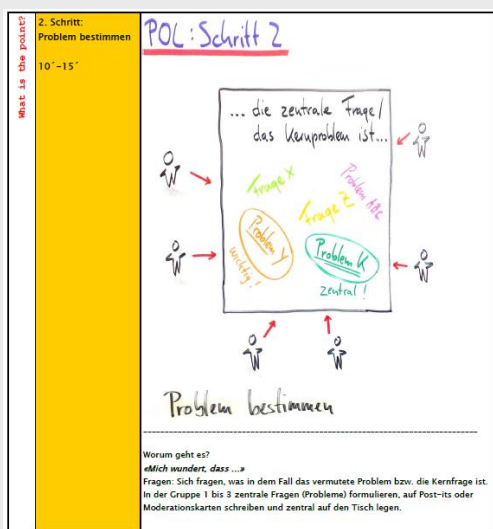 What is the point?
2. Schritt:
Problem bestimmen
10´-15´
POL: Schritt 2
... die zentrale Frage/
das Kernproblem ist...
Frage X
Problem ABC
Frage Z
Problem Y
wichtig!
Problem K
zentral!
Problem bestimmen
Worum geht es?
«Mich wundert, dass ...»
Fragen: Sich fragen, was in dem Fall das vermutete Problem bzw. die Kernfrage ist.
In der Gruppe 1 bis 3 zentrale Fragen (Probleme) formulieren, auf Post-its oder
Moderationskarten schreiben und zentral auf den Tisch legen.